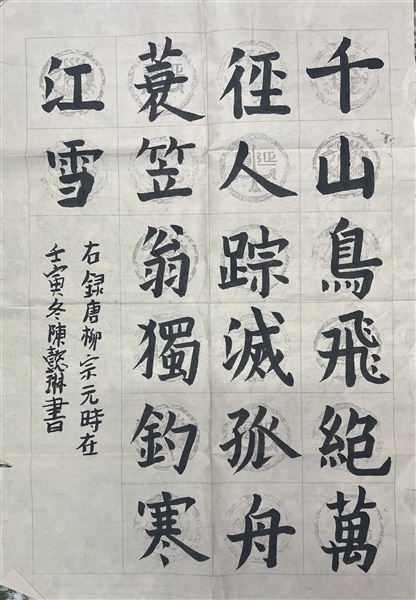 千山鳥飛絕萬
徑人踪滅孤舟
蓑笠翁獨釣寒
江雪
右録唐柳宗元時在
壬寅冬陳懿琳書